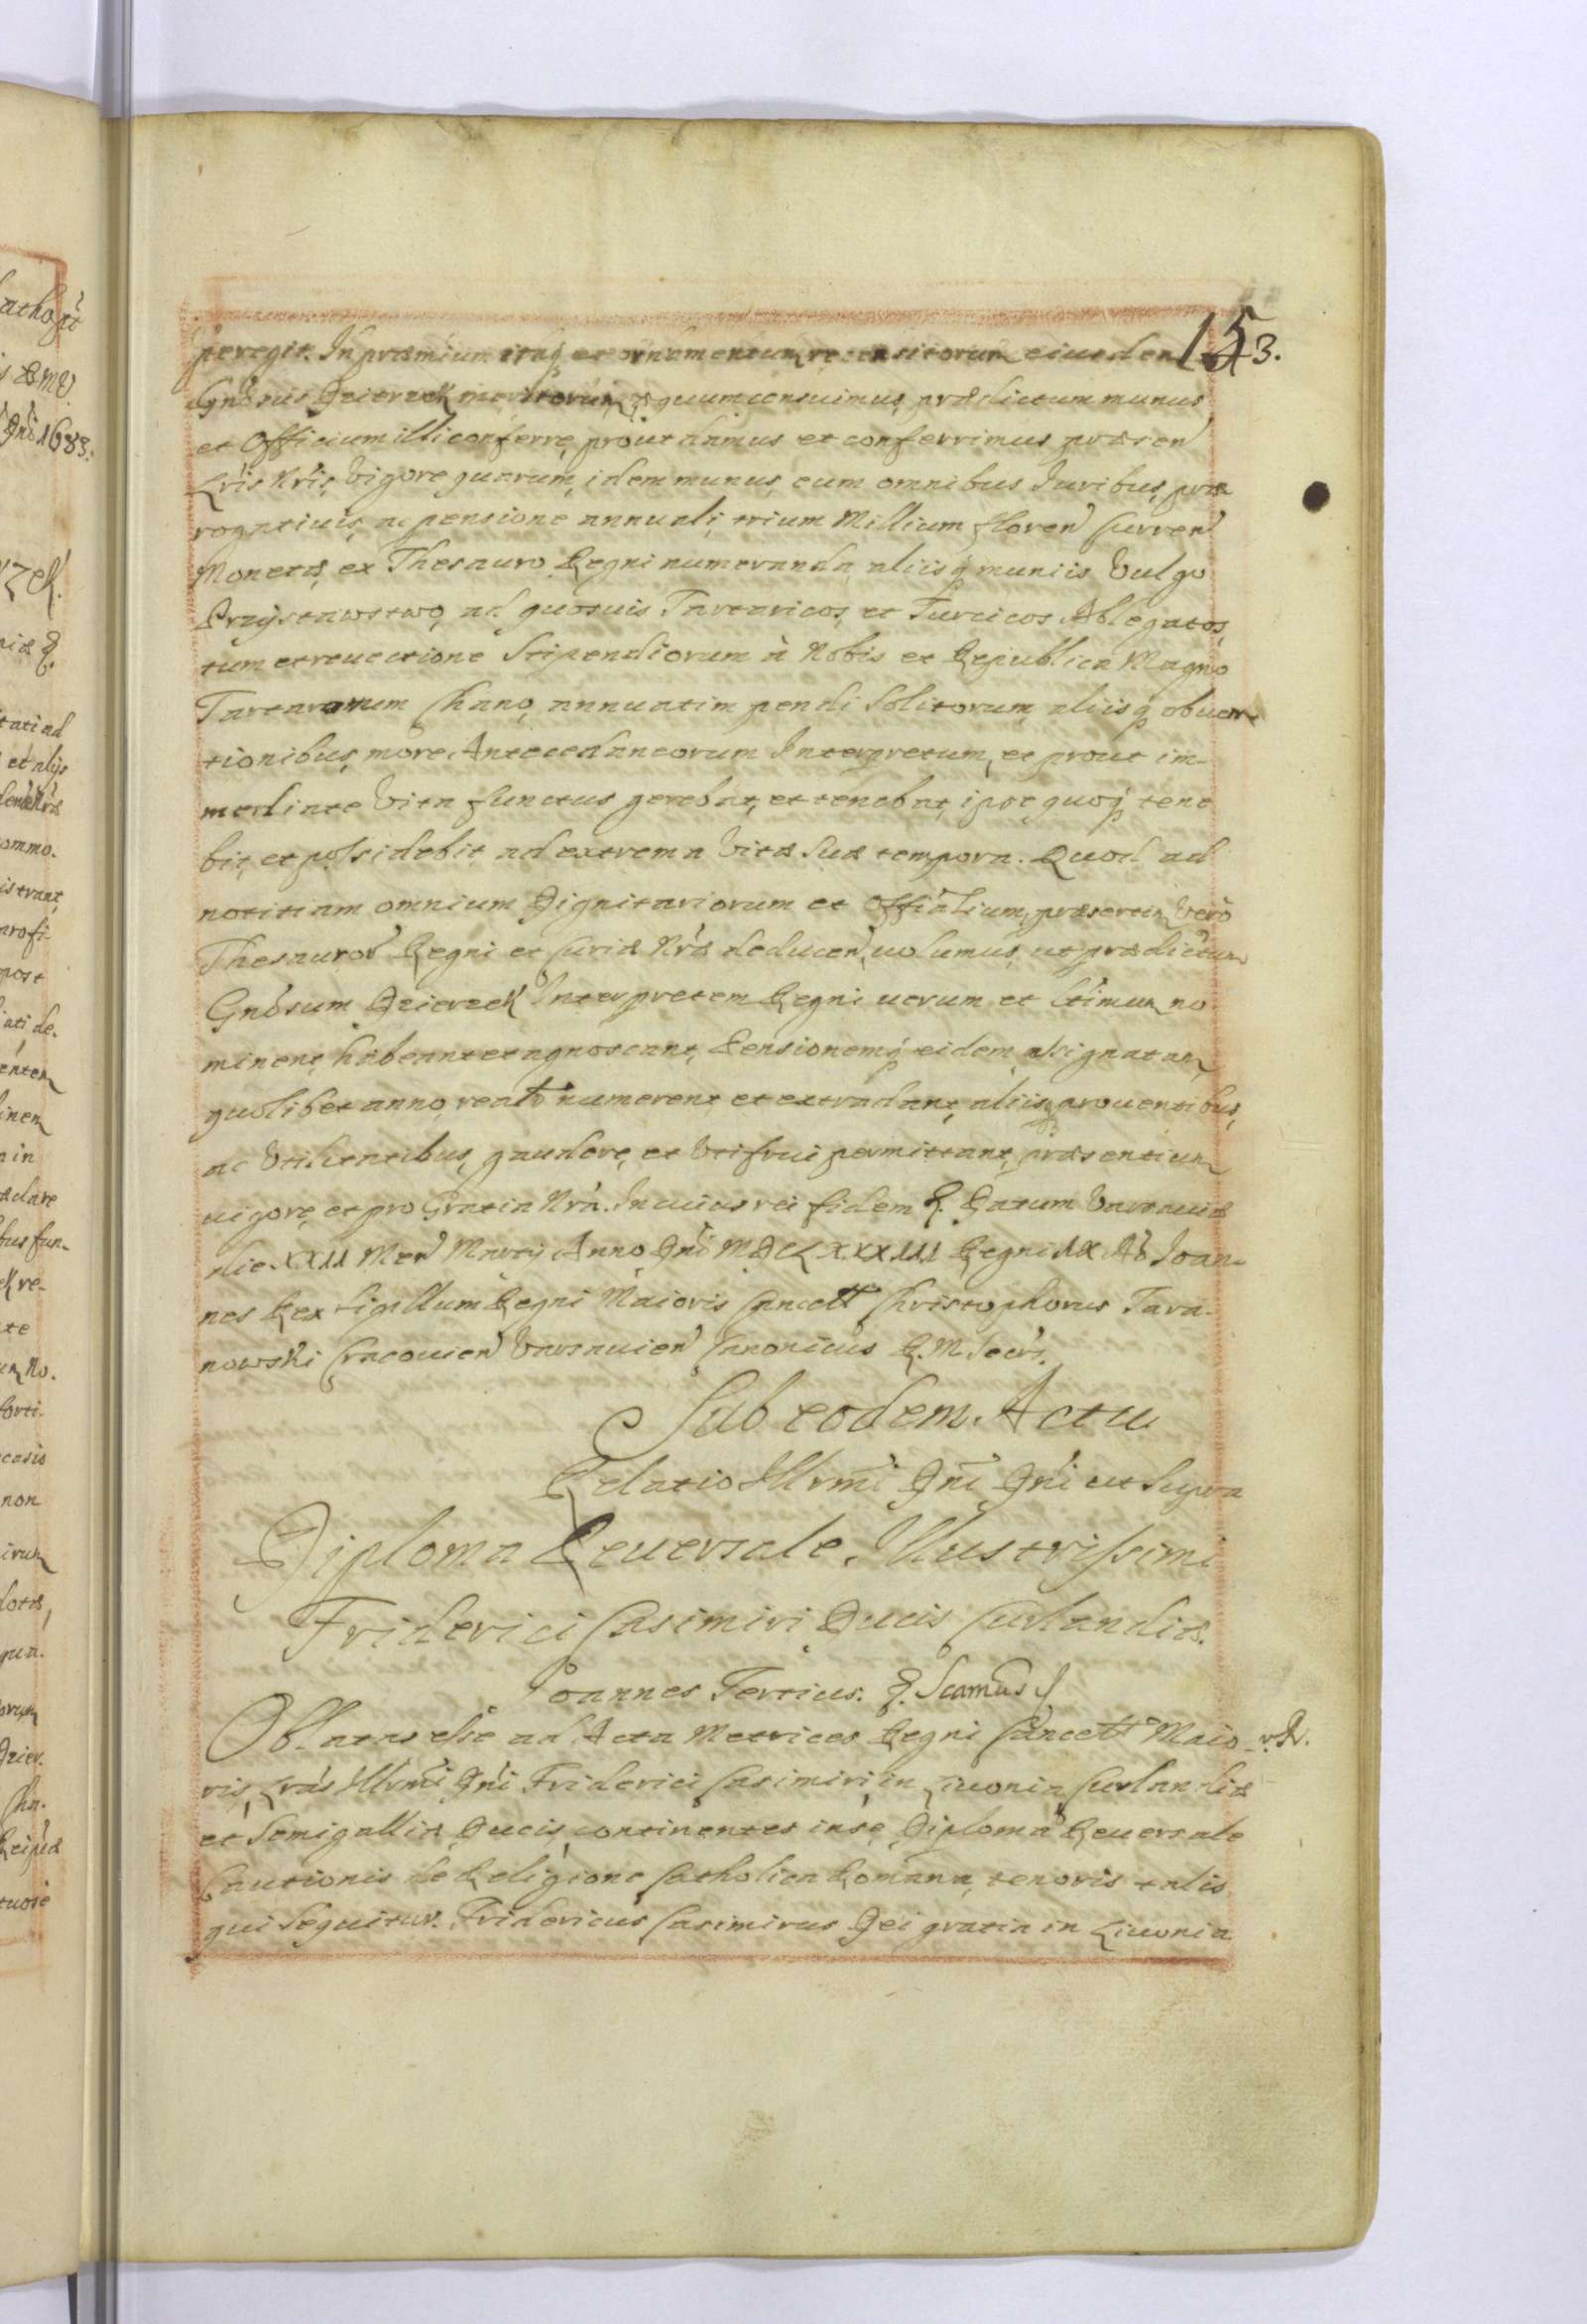 153.
peregit. In præmium itaq, et ornamentum recensitorum eiusdem
Gnōsus Dzierzek meritorum æquum censuimus, prædictum munus
et Officium illi conferre, prout damus et conferrimus præsen
Lrīs Nrīs, Vigore quarum, idem munus, cum omnibus Iuribus, præ
rogatiuis, ac pensione annuali, trium Millium floren Curren
Monetæ, ex Thesauro Regni numeranda, aliisq muniis Vulgo
Przystawstwo, ad quosuis Tartaricos, et Turcicos Ablegatos,
tum et reuectione Stipendiorum à Nobis et Republica Magno
Tartarorum Chano, annuatim pendi Solitorum, aliisq obuen-
tionibus, more Antecedaneorum Interpretum, et prout im-
mediate Vita functus gerebat, et tenebat, ipse quoq tene
bit, et possidebit ad extrema Vitæ Suæ tempora. Quod ad
notitiam omnium Dignitariorum et Offialium, præsertim Verò
Thesauror Regni et Curiæ Nræ deducen, uolumus, ut prædictum
Gnōsum Dzierzek Interpretem Regni uerum et Ltimum no
minent, habeant et agnoscant, Pensionemq eidem assignatam,
quolibet anno, realr numerent et extradant, aliisq prouentibus,
ac Vtilitatibus, gaudere, et Vtifrui permittant, præsentium
uigore, et pro Gratia Nrā. In cuius rei fidem &. Datum Varsauiæ
die. XXII Men Martij Anno Dni MDCLXXXIII Regni IX Ao Ioan-
nes Rex Sigillum Regni Maioris Cancell Christophorus Tara-
nowski Cracouien Varsauien Canonicus R. M. Secrs.
Sub eodem Actu
Relatio Illrmi Dni Dni ut Supra
Diploma Reuersale, Illustrissimi
Friderici Casimiri Ducis Curlandiæ.
Ioannes Tertius. &. Scamus
Oblatas esse ad Acta Metrices Regni Cancell Maio
ris, Lrās Illrmi Dni Friderici Casimiri, in Liuonia Curlandiæ
et Semigalliæ Ducis, continentes in se, Diploma Reuersale
Cautionis de Religione Catholica Romana, tenoris talis
qui Sequitur. Fridericus Casimirus Dei gratia in Liuonia